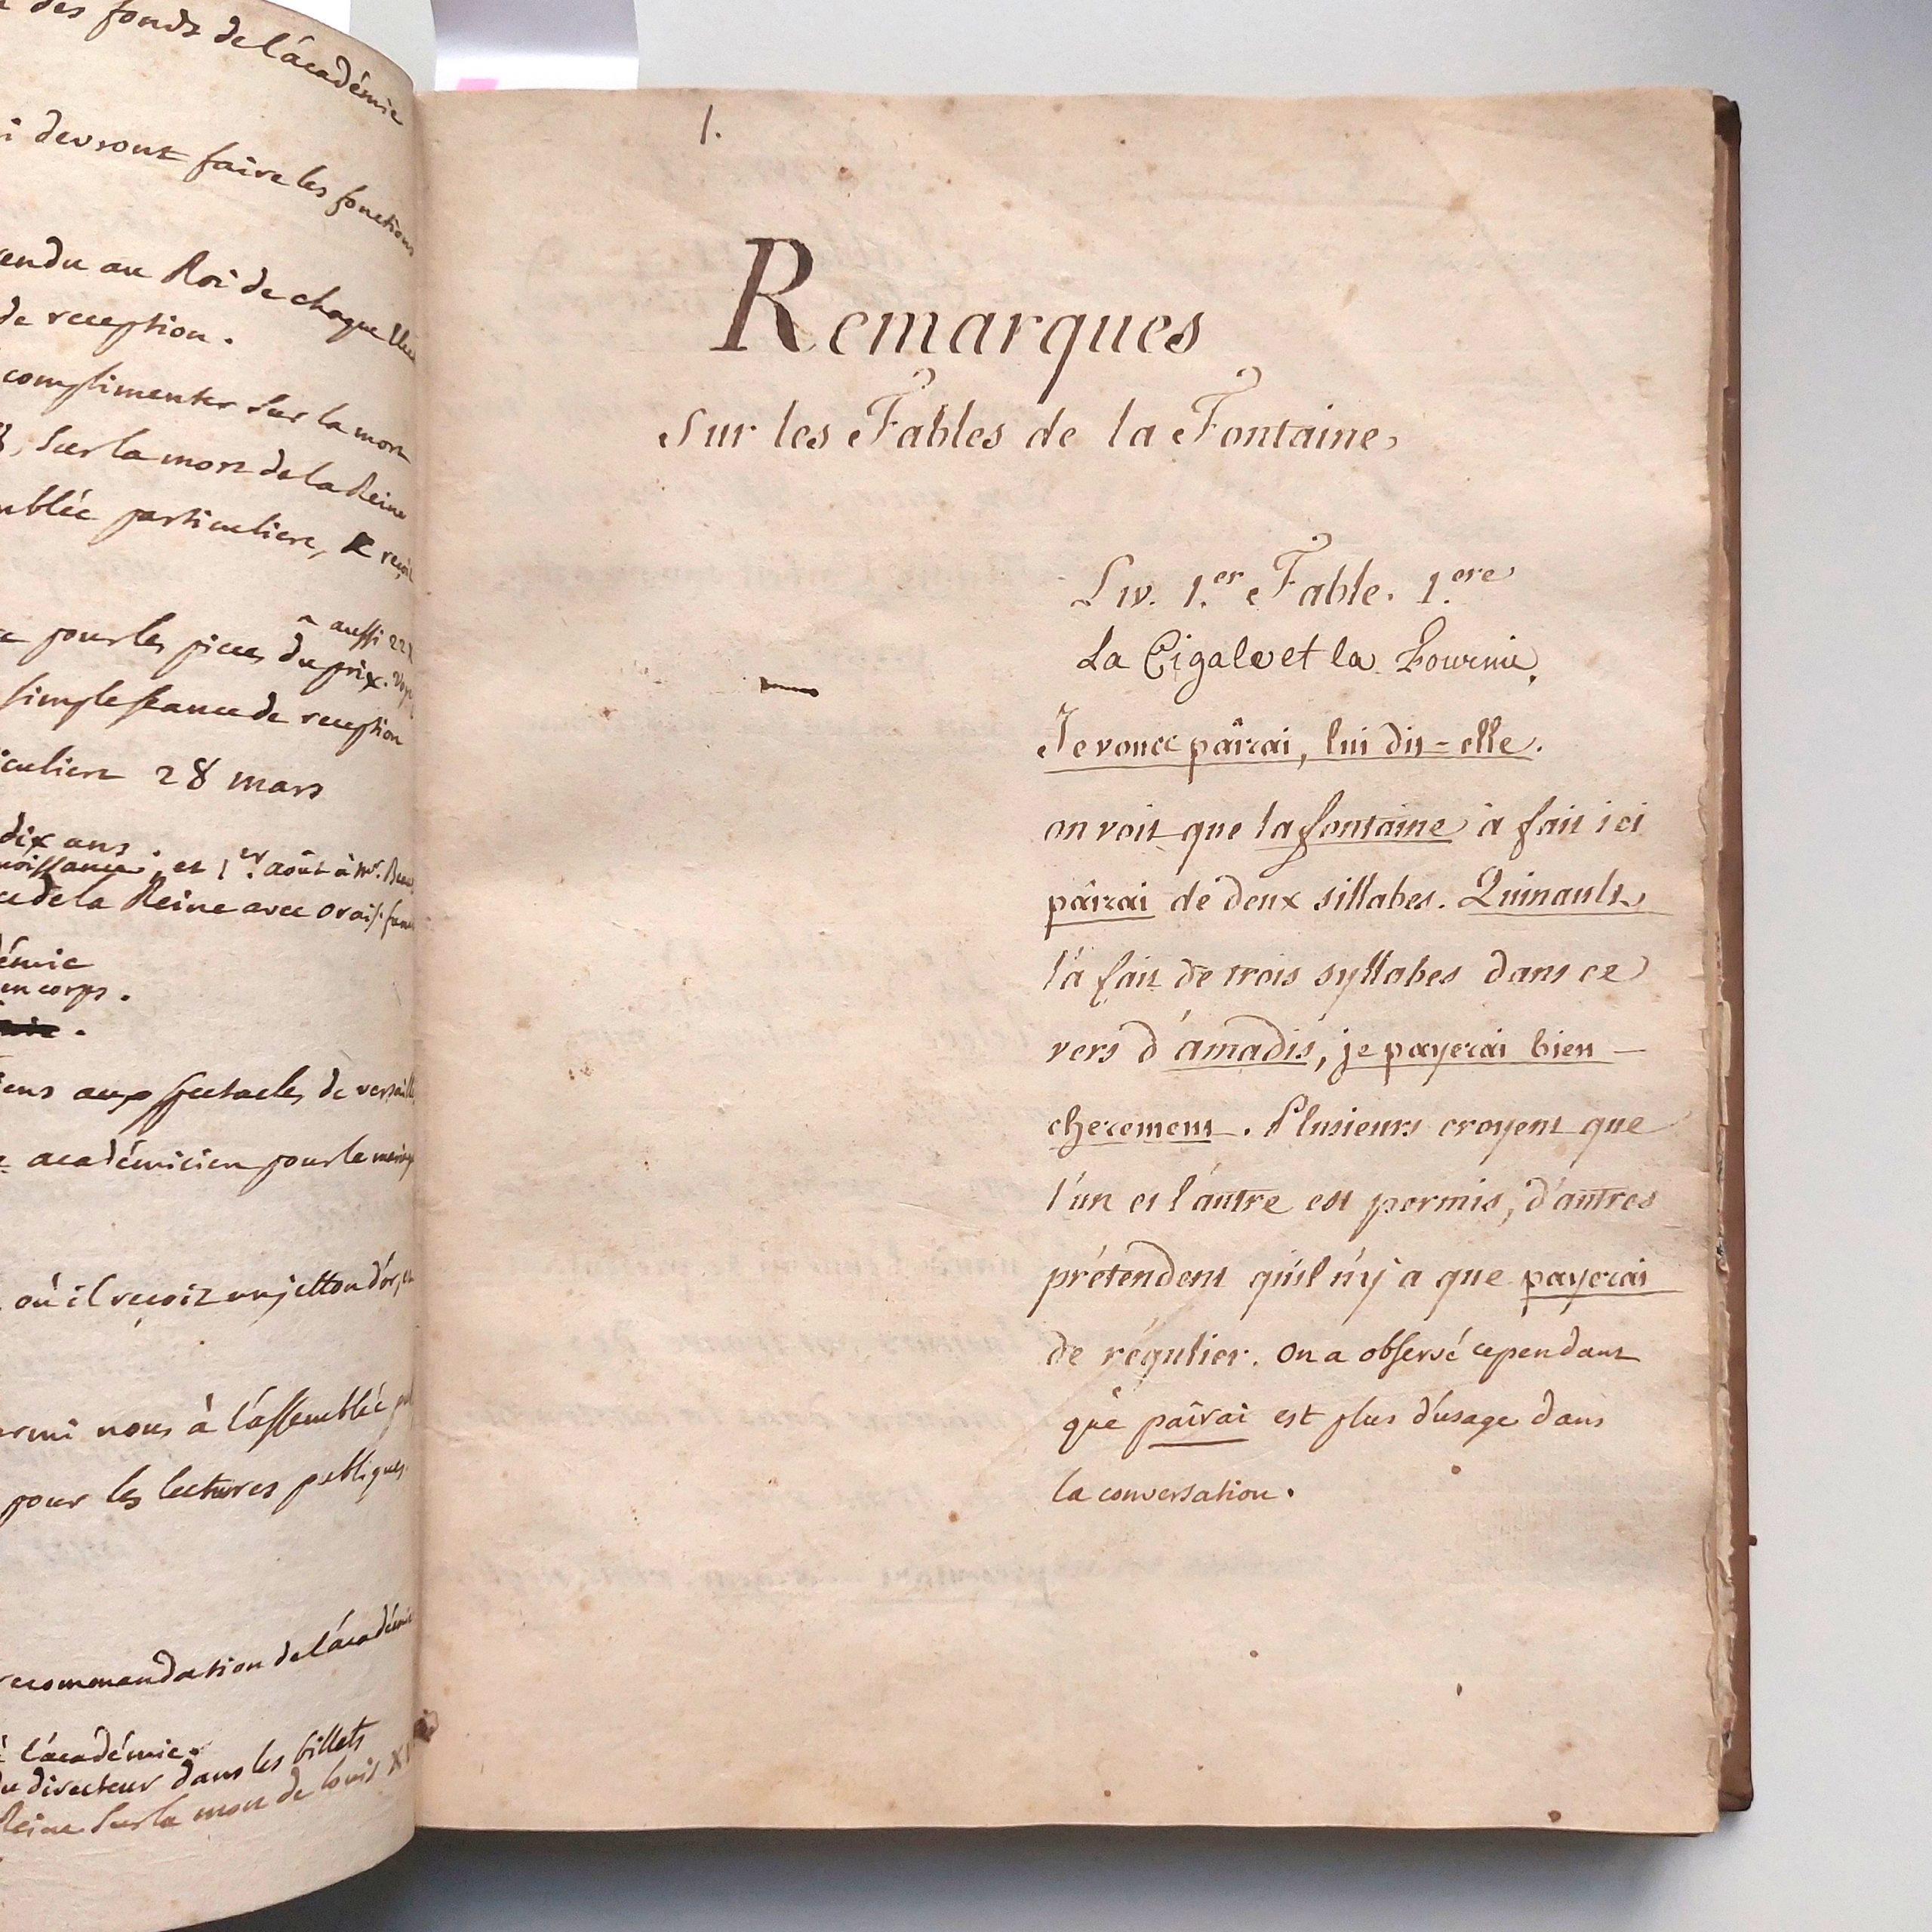 des fonds de l'académie
i devront faire les fonctions
endu au Roi de chaque
de reception.
complimenter sur la mort
, sur la mort de la Reine
mblée particuliere, & reçoit
aussi 22
pour les pieces du prix.
simple séance de reception
iculiere 28 mars
dix ans.
noissance, et 1.er août à mr.
ce de la Reine avec orais. fun
émie
en corps.
iens aux spectacles de versaill
academicien pour le
où il reçoit un jetton d'or, et
rmi nous à l'assemblée
pour les lectures publiques.
recommandation de l'académie
l'académie.
du directeur dans les billets
Reine sur la mort de louis X
1.
Remarques
Sur les Fables de la Fontaine,
Liv. 1.er Fable. 1.ere
La Cigale et la Fourmie.
Je vouce pâirai, lui dit-elle.
on voit que la fontaine à fait ici
pâirai de deux sillabes. Quinault
l'à fait de trois syllabes dans ce
vers d'amadis, je payerai bien -
cherement. Plusieurs croyent que
l'un et l'autre est permis, d'autres
prétendent qu'il n'y a que payerai
de régulier. on a observé cependant
que paîrai est plus d'usage dans
la conversation.